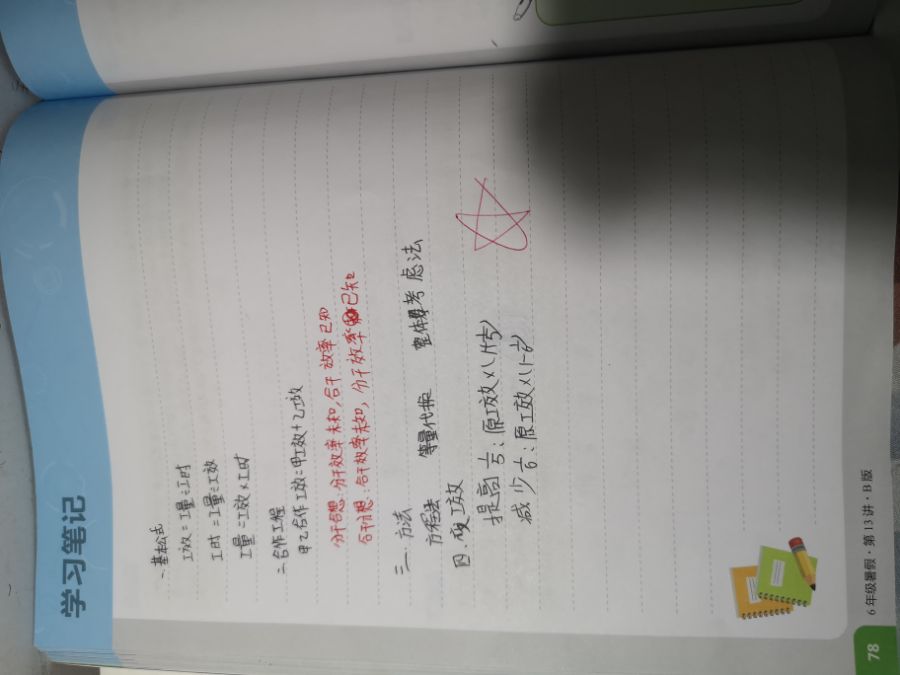 学习笔记
一、基本公式
工效=工量÷工时
工时=工量÷工效
工量=工效×工时
二、合作工程
甲乙合作工效=甲工效+乙工效
分干合想:分干效率未知,合干效率已知
合干分想:合干效率未知,分干效率已知
三、方法
方程法 等量代换 整体考虑法
四、改工效
提高:原工效×(1+
减少:原工效×(1-
6年级暑假·第13讲·B版
78